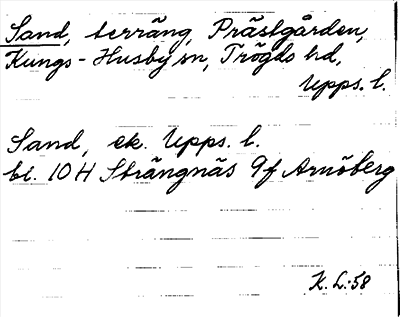 Sand, terräng, Prästgården,
Kungs-Husby sn, Trögds hd,
Upps. l.
Sand, ek. Upps. l.
bl. 10 H Strängnäs 9f Arnöberg
K. L:58